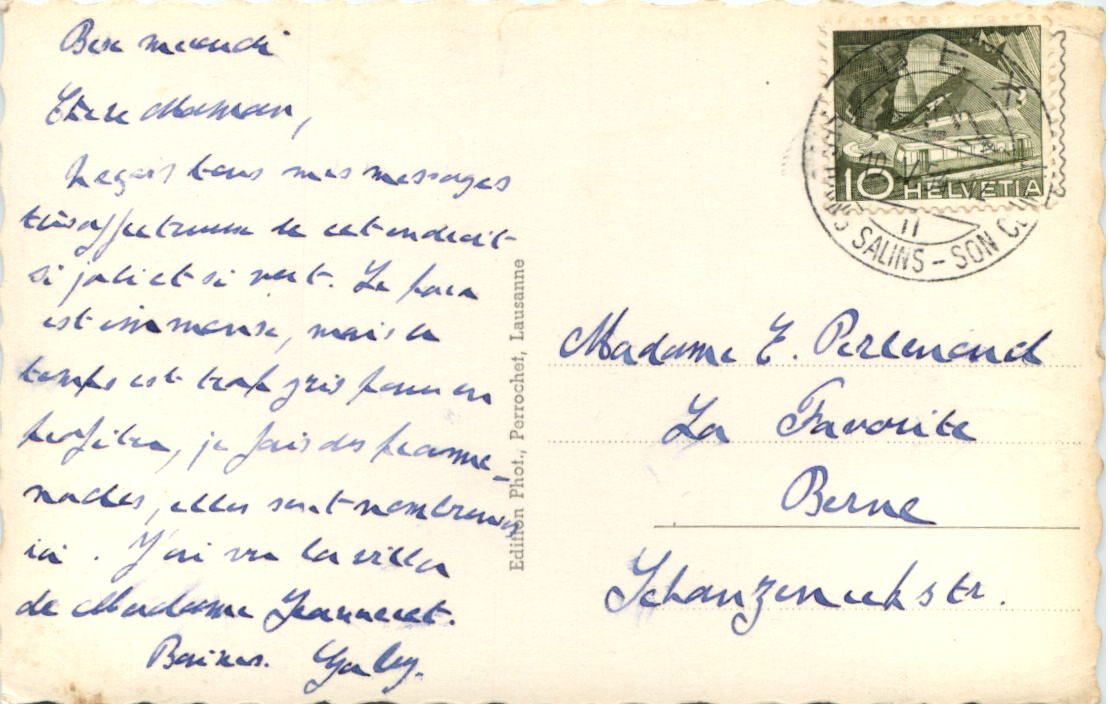 Bex mercredi
Chère Maman,
Reçois tous mes messages
très affectueux de cet endroit
si joli et si vert. Le parc
est immense, mais le
temps est trop gris pour en
profiter, je fais des prome-
nades, elles sont nombreuses
ici. J'ai vu la villa
de Madame Jeanneret.
Baisers. Gaby.
Edition Phot., Perrochet, Lausanne
BEX
BAINS SALINS - SON
10 HELVETIA
Madame E. Perlenoud
La Favorite
Berne
Schanzeneckstr.